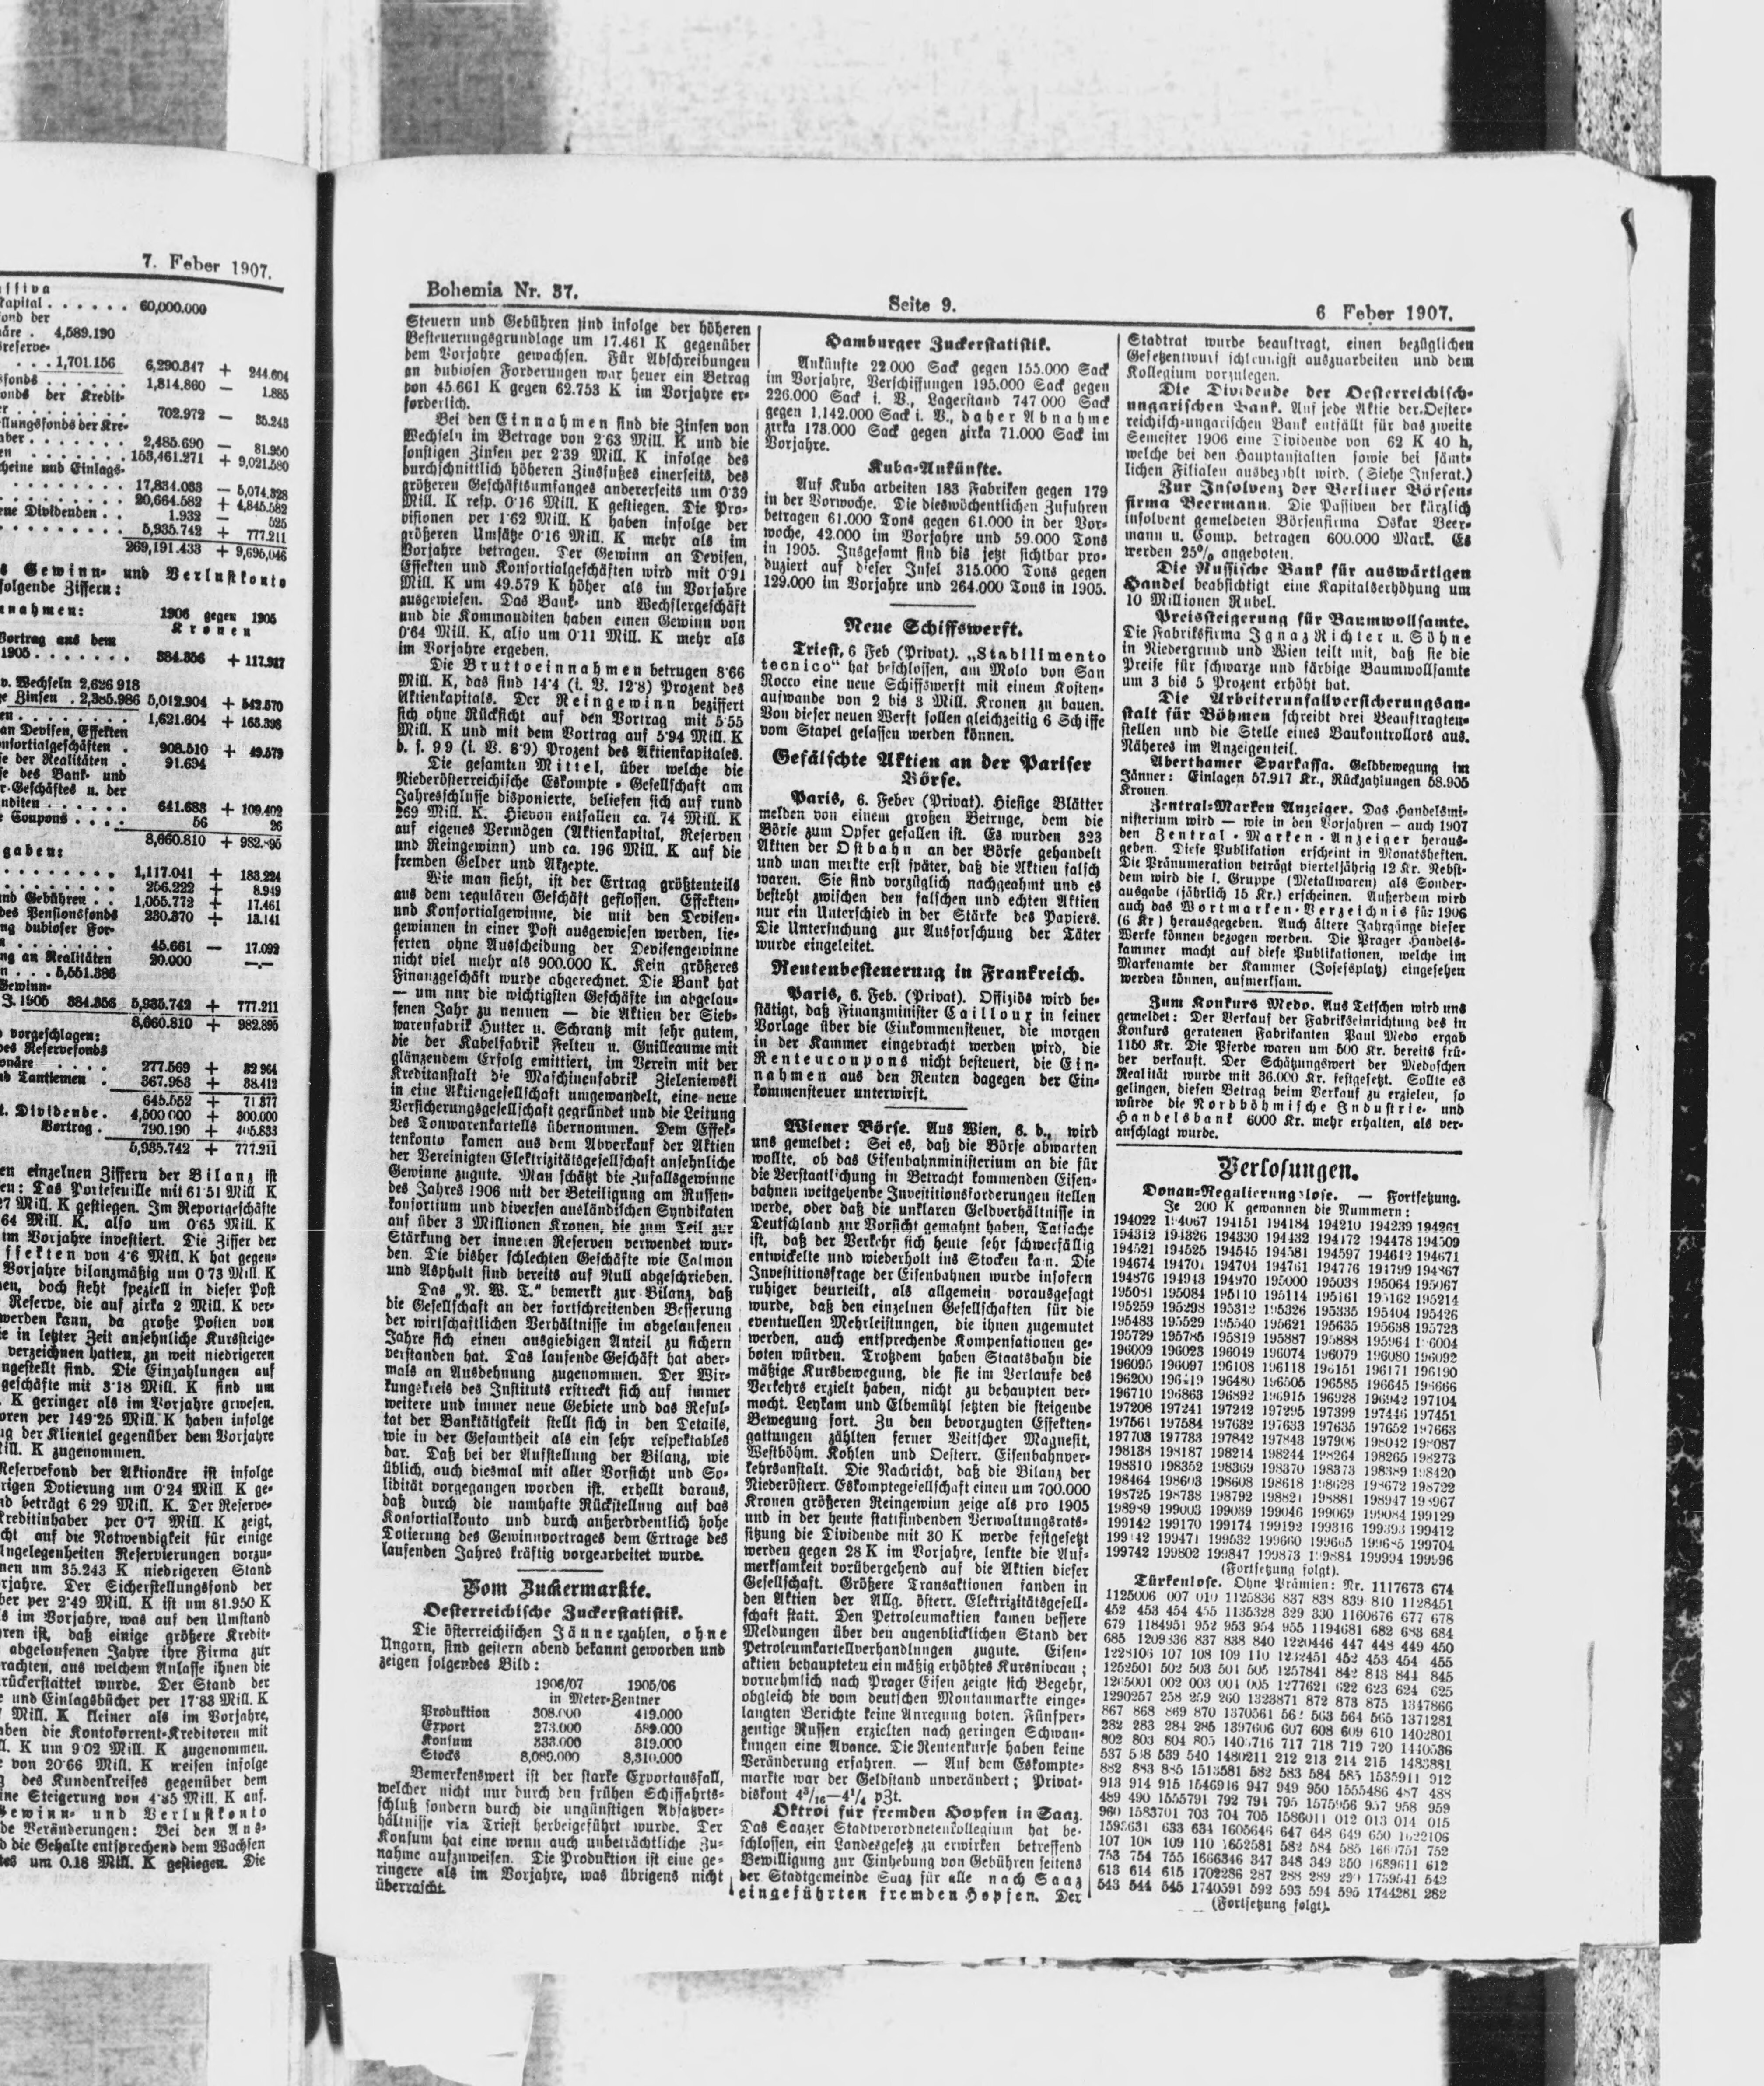 7. Feber 1907.
ssiva
Kapital . . . . . . 60,000.000
fond der
näre . 4,589.190
reserve-
. . . 1,701.156 6,290.347 + 244.604
sfonds . . . . . . 1,814.860 — 1.885
onds der Kredit-
er . . . . . . . . 702.972 — 35.243
llungsfonds der Kre-
aber . . . . . . . 2,485.690 — 81.950
en . . . . . . . 153,461.271 + 9,021.580
cheine und Einlags-
. . . . . . . . 17,834.083 — 5,074.328
. . . . . . . . 20,664.582 + 4,845.582
ene Dividenden . . 1.932 — 525
. . . . . . . . 5,935.742 + 777.211
269,191.433 + 9,695.046
s Gewinn- und Verlustkonto
folgende Ziffern:
nnahmen: 1906 gegen 1905
Kronen
Vortrag aus dem
1905 . . . . . . . 384.356 + 117.917
v. Wechseln 2,626 918
ge Zinsen . 2,385.986 5,012.904 + 542.570
en . . . . . . . . 1,621.604 + 163.398
an Devisen, Effekten
onsortialgeschäften . 908.510 + 49.579
se der Realitäten . 91.694
se des Bank- und
r-Geschäftes u. der
nditen . . . . . . 641.683 + 109.402
e Coupons . . . . 56 26
8,660.810 + 982.895
gaben:
. . . . . . . . 1,117.041 + 183.224
. . . . . . . . 256.222 + 8.949
und Gebühren . . 1,055.772 + 17.461
des Pensionsfonds 230.370 + 13.141
ng dubioser For-
n . . . . . . . 45.661 — 17.092
ng an Realitäten 20.000 —.—
n . . . 5,551.386
Gewinn-
J. 1905 384.356 5,935.742 + 777.211
8,660.810 + 982.895
vorgeschlagen:
des Reservefonds
onäre . . . . 277.569 + 32 964
nd Tantiemen . 367.983 + 38.412
645.552 + 71 377
t. Dividende . 4,500 000 + 300.000
Vortrag . 790.190 + 405.833
5,935.742 + 777.211
en einzelnen Ziffern der Bilanz ist
en: Das Portefeuille mit 61·51 Mill K
27 Mill. K gestiegen. Im Reportgeschäfte
64 Mill. K, also um 0·65 Mill. K
im Vorjahre investiert. Die Ziffer der
ffekten von 4·6 Mill. K hat gegen-
Vorjahre bilanzmäßig um 0·73 Mill. K
en, doch steht speziell in dieser Post
Reserve, die auf zirka 2 Mill. K ver-
werden kann, da große Posten von
ie in letzter Zeit ansehnliche Kurssteige-
verzeichnen hatten, zu weit niedrigeren
ngestellt sind. Die Einzahlungen auf
geschäfte mit 3·18 Mill. K sind um
K geringer als im Vorjahre gewesen.
oren per 149·25 Mill. K haben infolge
ng der Klientel gegenüber dem Vorjahre
ill. K zugenommen.
Reservefond der Aktionäre ist infolge
rigen Dotierung um 0·24 Mill. K ge-
nd beträgt 6 29 Mill. K. Der Reserve-
Kreditinhaber per 0·7 Mill. K zeigt,
cht auf die Notwendigkeit für einige
Angelegenheiten Reservierungen vorzu-
nen um 35.243 K niedrigeren Stand
rjahre. Der Sicherstellungsfond der
ber per 2·49 Mill. K ist um 81.950 K
s im Vorjahre, was auf den Umstand
ren ist, daß einige größere Kredit-
abgelaufenen Jahre ihre Firma zur
rachten, aus welchem Anlasse ihnen die
rückerstattet wurde. Der Stand der
und Einlagsbücher per 17·83 Mill. K
Mill. K kleiner als im Vorjahre,
aben die Kontokorrent-Kreditoren mit
l. K um 9 02 Mill. K zugenommen.
von 20·66 Mill. K weisen infolge
g des Kundenkreises gegenüber dem
ine Steigerung von 4·85 Mill. K auf.
Gewinn- und Verlustkonto
de Veränderungen: Bei den Aus-
d die Gehalte entsprechend dem Wachsen
tes um 0.18 Mill. K gestiegen. Die
Bohemia Nr. 37.
Seite 9.
6 Feber 1907.
Steuern und Gebühren sind infolge der höheren
Besteuerungsgrundlage um 17.461 K gegenüber
dem Vorjahre gewachsen. Für Abschreibungen
an dubiosen Forderungen war heuer ein Betrag
von 45.661 K gegen 62.753 K im Vorjahre er-
forderlich.
Bei den Einnahmen sind die Zinsen von
Wechseln im Betrage von 2·63 Mill. K und die
sonstigen Zinsen per 2·39 Mill. K infolge des
durchschnittlich höheren Zinsfußes einerseits, des
größeren Geschäftsumfanges andererseits um 0·39
Mill. K resp. 0·16 Mill. K gestiegen. Die Pro-
visionen per 1·62 Mill. K haben infolge der
größeren Umsätze 0·16 Mill. K mehr als im
Vorjahre betragen. Der Gewinn an Devisen,
Effekten und Konsortialgeschäften wird mit 0·91
Mill. K um 49.579 K höher als im Vorjahre
ausgewiesen. Das Bank- und Wechslergeschäft
und die Kommanditen haben einen Gewinn von
0·64 Mill. K, also um 0·11 Mill. K mehr als
im Vorjahre ergeben.
Die Bruttoeinnahmen betrugen 8·66
Mill. K, das sind 14·4 (i. V. 12·8) Prozent des
Aktienkapitals. Der Reingewinn beziffert
sich ohne Rücksicht auf den Vortrag mit 5·55
Mill. K und mit dem Vortrag auf 5·94 Mill. K
d. s. 9 9 (i. V. 8·9) Prozent des Aktienkapitales.
Die gesamten Mittel, über welche die
Niederösterreichische Eskompte-Gesellschaft am
Jahresschlusse disponierte, beliefen sich auf rund
269 Mill. K. Hievon entfallen ca. 74 Mill. K
auf eigenes Vermögen (Aktienkapital, Reserven
und Reingewinn) und ca. 196 Mill. K auf die
fremden Gelder und Akzepte.
Wie man sieht, ist der Ertrag größtenteils
aus dem regulären Geschäft geflossen. Effekten-
und Konsortialgewinne, die mit den Devisen-
gewinnen in einer Post ausgewiesen werden, lie-
ferten ohne Ausscheidung der Devisengewinne
nicht viel mehr als 900.000 K. Kein größeres
Finanzgeschäft wurde abgerechnet. Die Bank hat
— um nur die wichtigsten Geschäfte im abgelau-
fenen Jahr zu nennen — die Aktien der Sieb-
warenfabrik Hutter u. Schrantz mit sehr gutem,
die der Kabelfabrik Felten u. Guilleaume mit
glänzendem Erfolg emittiert, im Verein mit der
Kreditanstalt die Maschinenfabrik Zieleniewski
in eine Aktiengesellschaft umgewandelt, eine neue
Versicherungsgesellschaft gegründet und die Leitung
des Tonwarenkartells übernommen. Dem Effek-
tenkonto kamen aus dem Abverkauf der Aktien
der Vereinigten Elektrizitätsgesellschaft ansehnliche
Gewinne zugute. Man schätzt die Zufallsgewinne
des Jahres 1906 mit der Beteiligung am Russen-
konsortium und diversen ausländischen Syndikaten
auf über 3 Millionen Kronen, die zum Teil zur
Stärkung der inneren Reserven verwendet wur-
den. Die bisher schlechten Geschäfte wie Calmon
und Asphalt sind bereits auf Null abgeschrieben.
Das „N. W. T.“ bemerkt zur Bilanz, daß
die Gesellschaft an der fortschreitenden Besserung
der wirtschaftlichen Verhältnisse im abgelaufenen
Jahre sich einen ausgiebigen Anteil zu sichern
verstanden hat. Das laufende Geschäft hat aber-
mals an Ausdehnung zugenommen. Der Wir-
kungskreis des Instituts erstreckt sich auf immer
weitere und immer neue Gebiete und das Resul-
tat der Banktätigkeit stellt sich in den Details,
wie in der Gesamtheit als ein sehr respektables
dar. Daß bei der Aufstellung der Bilanz, wie
üblich, auch diesmal mit aller Vorsicht und So-
lidität vorgegangen worden ist, erhellt daraus,
daß durch die namhafte Rückstellung auf das
Konsortialkonto und durch außerordentlich hohe
Dotierung des Gewinnvortrages dem Ertrage des
laufenden Jahres kräftig vorgearbeitet wurde.
Vom Zuckermarkte.
Oesterreichische Zuckerstatistik.
Die österreichischen Jännerzahlen, ohne
Ungarn, sind gestern abend bekannt geworden und
zeigen folgendes Bild:
1906/07 1905/06
in Meter-Zentner
Produktion 308.000 419.000
Export 273.000 589.000
Konsum 333.000 319.000
Stocks 8,089.000 8,310.000
Bemerkenswert ist der starke Exportausfall,
welcher nicht nur durch den frühen Schiffahrts-
schluß sondern durch die ungünstigen Absatzver-
hältnisse via Triest herbeigeführt wurde. Der
Konsum hat eine wenn auch unbeträchtliche Zu-
nahme aufzuweisen. Die Produktion ist eine ge-
ringere als im Vorjahre, was übrigens nicht
überrascht.
Hamburger Zuckerstatistik.
Ankünfte 22.000 Sack gegen 155.000 Sack
im Vorjahre, Verschiffungen 195.000 Sack gegen
226.000 Sack i. V., Lagerstand 747 000 Sack
gegen 1,142.000 Sack i. V., daher Abnahme
zirka 173.000 Sack gegen zirka 71.000 Sack im
Vorjahre.
Kuba-Ankünfte.
Auf Kuba arbeiten 183 Fabriken gegen 179
in der Vorwoche. Die dieswöchentlichen Zufuhren
betragen 61.000 Tons gegen 61.000 in der Vor-
woche, 42.000 im Vorjahre und 59.000 Tons
in 1905. Insgesamt sind bis jetzt sichtbar pro-
duziert auf dieser Insel 315.000 Tons gegen
129.000 im Vorjahre und 264.000 Tons in 1905.
Neue Schiffswerft.
Triest, 6 Feb (Privat). „Stabilimento
tecnico“ hat beschlossen, am Molo von San
Rocco eine neue Schiffswerft mit einem Kosten-
aufwande von 2 bis 3 Mill. Kronen zu bauen.
Von dieser neuen Werft sollen gleichzeitig 6 Schiffe
vom Stapel gelassen werden können.
Gefälschte Aktien an der Pariser
Börse.
Paris, 6. Feber (Privat). Hiesige Blätter
melden von einem großen Betruge, dem die
Börse zum Opfer gefallen ist. Es wurden 323
Aktien der Ostbahn an der Börse gehandelt
und man merkte erst später, daß die Aktien falsch
waren. Sie sind vorzüglich nachgeahmt und es
besteht zwischen den falschen und echten Aktien
nur ein Unterschied in der Stärke des Papiers.
Die Untersuchung zur Ausforschung der Täter
wurde eingeleitet.
Rentenbesteuerung in Frankreich.
Paris, 6. Feb. (Privat). Offiziös wird be-
stätigt, daß Finanzminister Cailloux in seiner
Vorlage über die Einkommensteuer, die morgen
in der Kammer eingebracht werden wird, die
Rentencoupons nicht besteuert, die Ein-
nahmen aus den Renten dagegen der Ein-
kommensteuer unterwirft.
Wiener Börse. Aus Wien, 6. d., wird
uns gemeldet: Sei es, daß die Börse abwarten
wollte, ob das Eisenbahnministerium an die für
die Verstaatlichung in Betracht kommenden Eisen-
bahnen weitgehende Investitionsforderungen stellen
werde, oder daß die unklaren Geldverhältnisse in
Deutschland zur Vorsicht gemahnt haben, Tatsache
ist, daß der Verkehr sich heute sehr schwerfällig
entwickelte und wiederholt ins Stocken kam. Die
Investitionsfrage der Eisenbahnen wurde insofern
ruhiger beurteilt, als allgemein vorausgesagt
wurde, daß den einzelnen Gesellschaften für die
eventuellen Mehrleistungen, die ihnen zugemutet
werden, auch entsprechende Kompensationen ge-
boten würden. Trotzdem haben Staatsbahn die
mäßige Kursbewegung, die sie im Verlaufe des
Verkehrs erzielt haben, nicht zu behaupten ver-
mocht. Leykam und Elbemühl setzten die steigende
Bewegung fort. Zu den bevorzugten Effekten-
gattungen zählten ferner Veitscher Magnesit,
Westböhm. Kohlen und Oesterr. Eisenbahnver-
kehrsanstalt. Die Nachricht, daß die Bilanz der
Niederösterr. Eskomptegesellschaft einen um 700.000
Kronen größeren Reingewinn zeige als pro 1905
und in der heute stattfindenden Verwaltungsrats-
sitzung die Dividende mit 30 K werde festgesetzt
werden gegen 28 K im Vorjahre, lenkte die Auf-
merksamkeit vorübergehend auf die Aktien dieser
Gesellschaft. Größere Transaktionen fanden in
den Aktien der Allg. österr. Elektrizitätsgesell-
schaft statt. Den Petroleumaktien kamen bessere
Meldungen über den augenblicklichen Stand der
Petroleumkartellverhandlungen zugute. Eisen-
aktien behaupteten ein mäßig erhöhtes Kursniveau;
vornehmlich nach Prager Eisen zeigte sich Begehr,
obgleich die vom deutschen Montanmarkte einge-
langten Berichte keine Anregung boten. Fünfper-
zentige Russen erzielten nach geringen Schwan-
kungen eine Avance. Die Rentenkurse haben keine
Veränderung erfahren. — Auf dem Eskompte-
markte war der Geldstand unverändert; Privat-
diskont 4³/₁₆—4¹/₄ pZt.
Oktroi für fremden Hopfen in Saaz.
Das Saazer Stadtverordnetenkollegium hat be-
schlossen, ein Landesgesetz zu erwirken betreffend
Bewilligung zur Einhebung von Gebühren seitens
der Stadtgemeinde Saaz für alle nach Saaz
eingeführten fremden Hopfen. Der
Stadtrat wurde beauftragt, einen bezüglichen
Gesetzentwurf schleunigst auszuarbeiten und dem
Kollegium vorzulegen.
Die Dividende der Oesterreichisch-
ungarischen Bank. Auf jede Aktie der Oester-
reichisch-ungarischen Bank entfällt für das zweite
Semester 1906 eine Dividende von 62 K 40 h,
welche bei den Hauptanstalten sowie bei sämt-
lichen Filialen ausbezahlt wird. (Siehe Inserat.)
Zur Insolvenz der Berliner Börsen-
firma Beermann. Die Passiven der kürzlich
insolvent gemeldeten Börsenfirma Oskar Beer-
mann u. Comp. betragen 600.000 Mark. Es
werden 25% angeboten.
Die Russische Bank für auswärtigen
Handel beabsichtigt eine Kapitalserhöhung um
10 Millionen Rubel.
Preissteigerung für Baumwollsamte.
Die Fabriksfirma Ignaz Richter u. Söhne
in Niedergrund und Wien teilt mit, daß sie die
Preise für schwarze und färbige Baumwollsamte
um 3 bis 5 Prozent erhöht hat.
Die Arbeiterunfallversicherungsan-
stalt für Böhmen schreibt drei Beauftragten-
stellen und die Stelle eines Baukontrollors aus.
Näheres im Anzeigenteil.
Aberthamer Sparkassa. Geldbewegung im
Jänner: Einlagen 57.917 Kr., Rückzahlungen 58.905
Kronen.
Zentral-Marken Anzeiger. Das Handelsmi-
nisterium wird — wie in den Vorjahren — auch 1907
den Zentral-Marken-Anzeiger heraus-
geben. Diese Publikation erscheint in Monatsheften.
Die Pränumeration beträgt vierteljährig 12 Kr. Nebst-
dem wird die I. Gruppe (Metallwaren) als Sonder-
ausgabe (jährlich 15 Kr.) erscheinen. Außerdem wird
auch das Wortmarken-Verzeichnis für 1906
(6 Kr) herausgegeben. Auch ältere Jahrgänge dieser
Werke können bezogen werden. Die Prager Handels-
kammer macht auf diese Publikationen, welche im
Markenamte der Kammer (Josefsplatz) eingesehen
werden können, aufmerksam.
Zum Konkurs Medo. Aus Tetschen wird uns
gemeldet: Der Verkauf der Fabrikseinrichtung des in
Konkurs geratenen Fabrikanten Paul Medo ergab
1150 Kr. Die Pferde waren um 500 Kr. bereits frü-
her verkauft. Der Schätzungswert der Medoschen
Realität wurde mit 36.000 Kr. festgesetzt. Sollte es
gelingen, diesen Betrag beim Verkauf zu erzielen, so
würde die Nordböhmische Industrie- und
Handelsbank 6000 Kr. mehr erhalten, als ver-
anschlagt wurde.
Verlosungen.
Donau-Regulierungslose. — Fortsetzung.
Je 200 K gewannen die Nummern:
194022 194067 194151 194184 194210 194239 194261
194312 194326 194330 194432 194472 194478 194509
194521 194525 194545 194581 194597 194612 194671
194674 194701 194704 194761 194776 194799 194867
194876 194943 194970 195000 195038 195064 195067
195081 195084 195110 195114 195161 195162 195214
195259 195298 195312 195326 195335 195404 195426
195483 195529 195540 195621 195635 195638 195723
195729 195785 195819 195887 195888 195964 196004
196009 196023 196049 196074 196079 196080 196092
196095 196097 196108 196118 196151 196171 196190
196200 196419 196480 196505 196585 196645 196666
196710 196863 196892 196915 196928 196942 197104
197208 197241 197242 197295 197399 197446 197451
197561 197584 197632 197633 197635 197652 197663
197703 197783 197842 197843 197906 198042 198087
198138 198187 198214 198244 198264 198265 198273
198310 198352 198369 198370 198373 198389 198420
198464 198603 198608 198618 198628 198672 198722
198725 198738 198792 198821 198881 198947 198967
198989 199003 199039 199046 199069 199084 199129
199142 199170 199174 199192 199316 199393 199412
199442 199471 199532 199660 199665 199685 199704
199742 199802 199847 199873 199884 199994 199996
(Fortsetzung folgt).
Türkenlose. Ohne Prämien: Nr. 1117673 674
1125006 007 010 1125836 837 838 839 840 1128451
452 453 454 455 1135328 329 330 1160676 677 678
679 1184951 952 953 954 955 1194681 682 683 684
685 1209836 837 838 840 1220446 447 448 449 450
1228106 107 108 109 110 1232451 452 453 454 455
1252501 502 503 504 505 1257841 842 843 844 845
1265001 002 003 004 005 1277621 622 623 624 625
1290257 258 259 260 1323871 872 873 875 1347866
867 868 869 870 1370561 562 563 564 565 1371281
282 283 284 285 1397606 607 608 609 610 1402801
802 803 804 805 1405716 717 718 719 720 1440536
537 538 539 540 1480211 212 213 214 215 1483881
882 883 885 1513581 582 583 584 585 1535911 912
913 914 915 1546916 947 949 950 1555486 487 488
489 490 1555791 792 794 795 1575956 957 958 959
960 1583701 703 704 705 1586011 012 013 014 015
1595631 633 634 1605646 647 648 649 650 1622106
107 108 109 110 1652581 582 584 585 1660751 752
753 754 755 1666346 347 348 349 350 1689611 612
613 614 615 1702286 287 288 289 290 1739541 542
543 544 545 1740591 592 593 594 595 1744281 282
(Fortsetzung folgt).